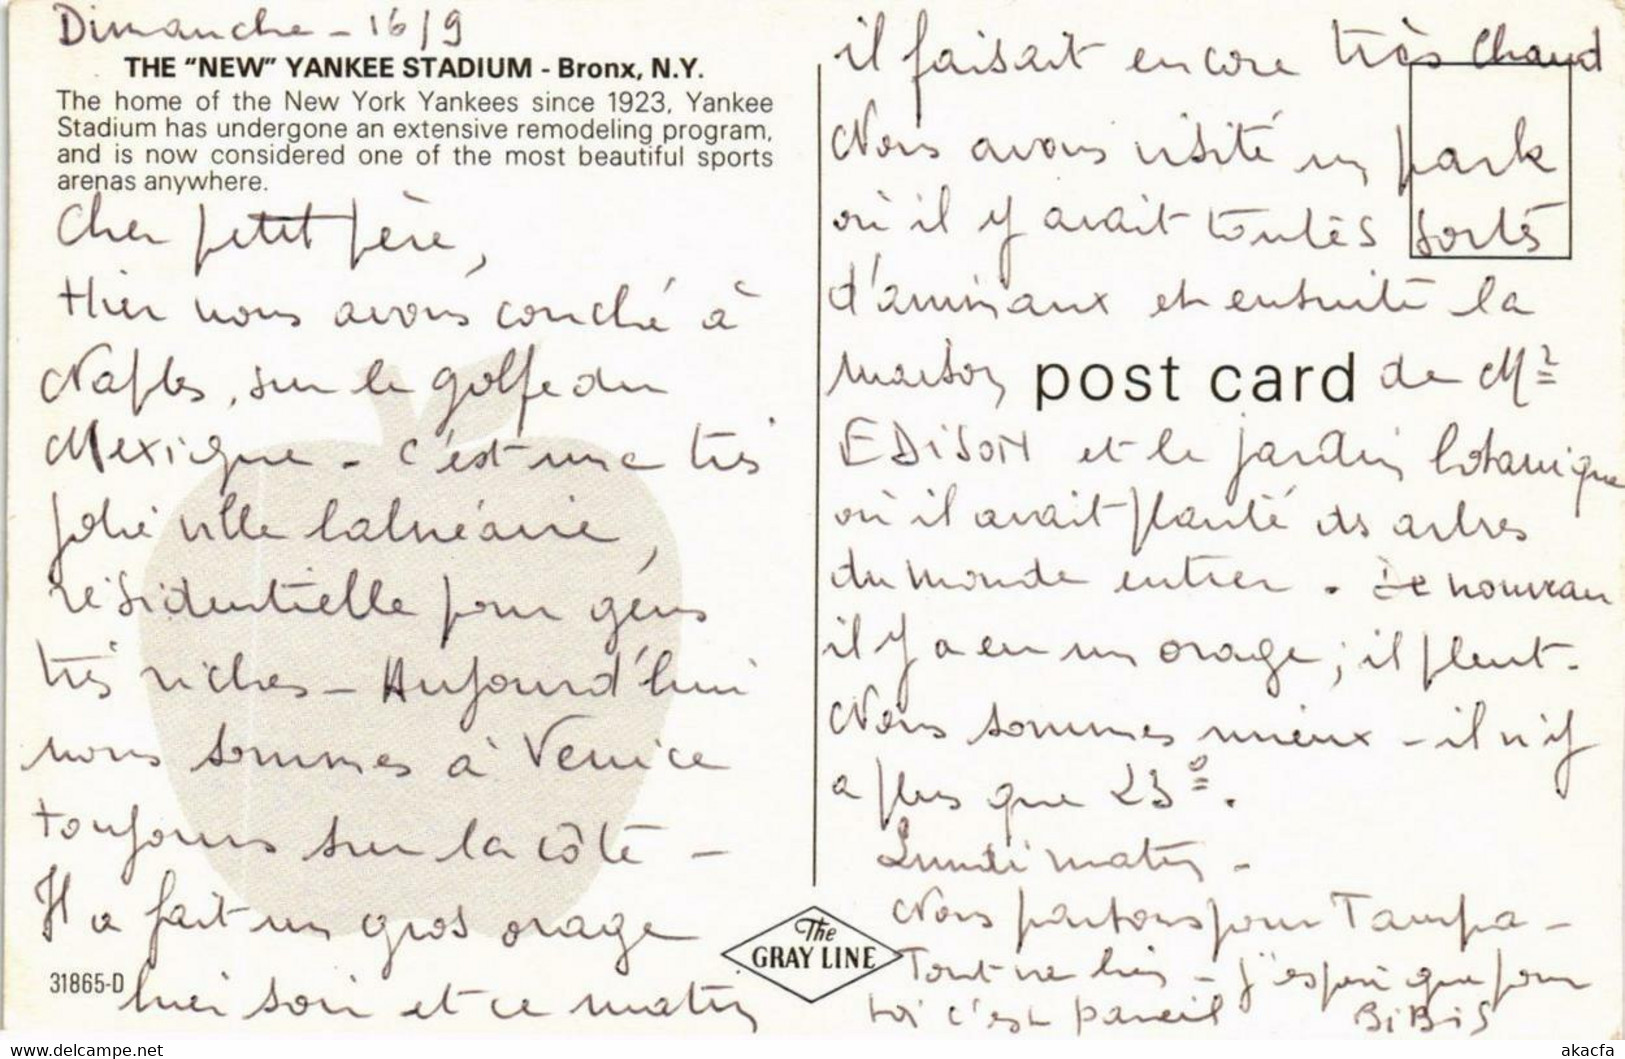 Dimanche - 16/9
THE “NEW” YANKEE STADIUM - Bronx, N.Y.
The home of the New York Yankees since 1923, Yankee
Stadium has undergone an extensive remodeling program,
and is now considered one of the most beautiful sports
arenas anywhere.
Cher petit père,
Hier nous avons couché à
Naples, sur le golfe du
Mexique - c'est une très
jolie ville balnéaire,
résidentielle pour gens
très riches - Aujourd'hui
nous sommes à Venice
toujours sur la côte -
Il a fait un gros orage
31865-D
hier soir et ce matin
The
GRAY LINE
il faisait encore très chaud
Nous avons visité un park
où il y avait toutes sortes
d'animaux et ensuite la
maison post card de Mr
EDISON et le jardin botanique
où il avait planté des arbres
du monde entier. De nouveau
il y a eu un orage, il pleut.
Nous sommes mieux - il n'y
a plus que 23°.
Lundi matin -
Nous partons pour Tampa -
Tout va bien - j'espère que pour
toi c'est pareil BiBiS
delcampe.net
akacfa